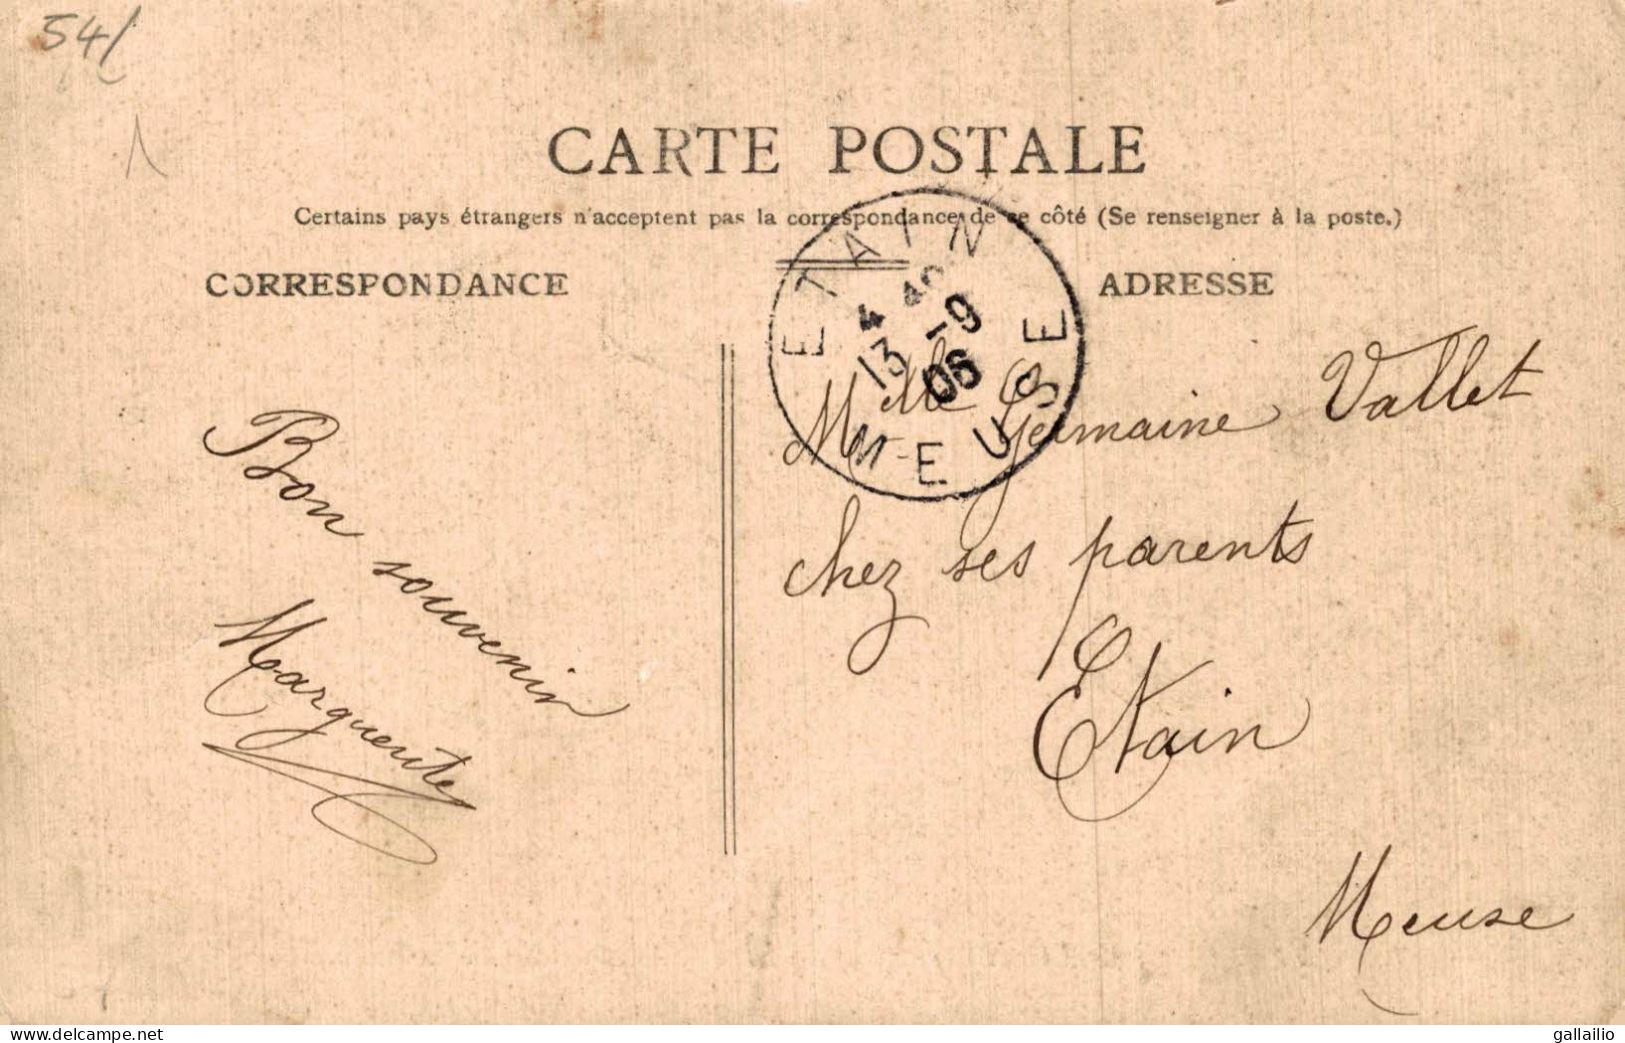 54/
CARTE POSTALE
Certains pays étrangers n'acceptent pas la correspondance de ce côté (Se renseigner à la poste.)
CORRESPONDANCE
ADRESSE
ETAIN
13 -9
06
MEUSE
Bon souvenir
Marguerite
Melle Germaine Vallet
chez ses parents
Etain
Meuse
www.delcampe.net
gallailio